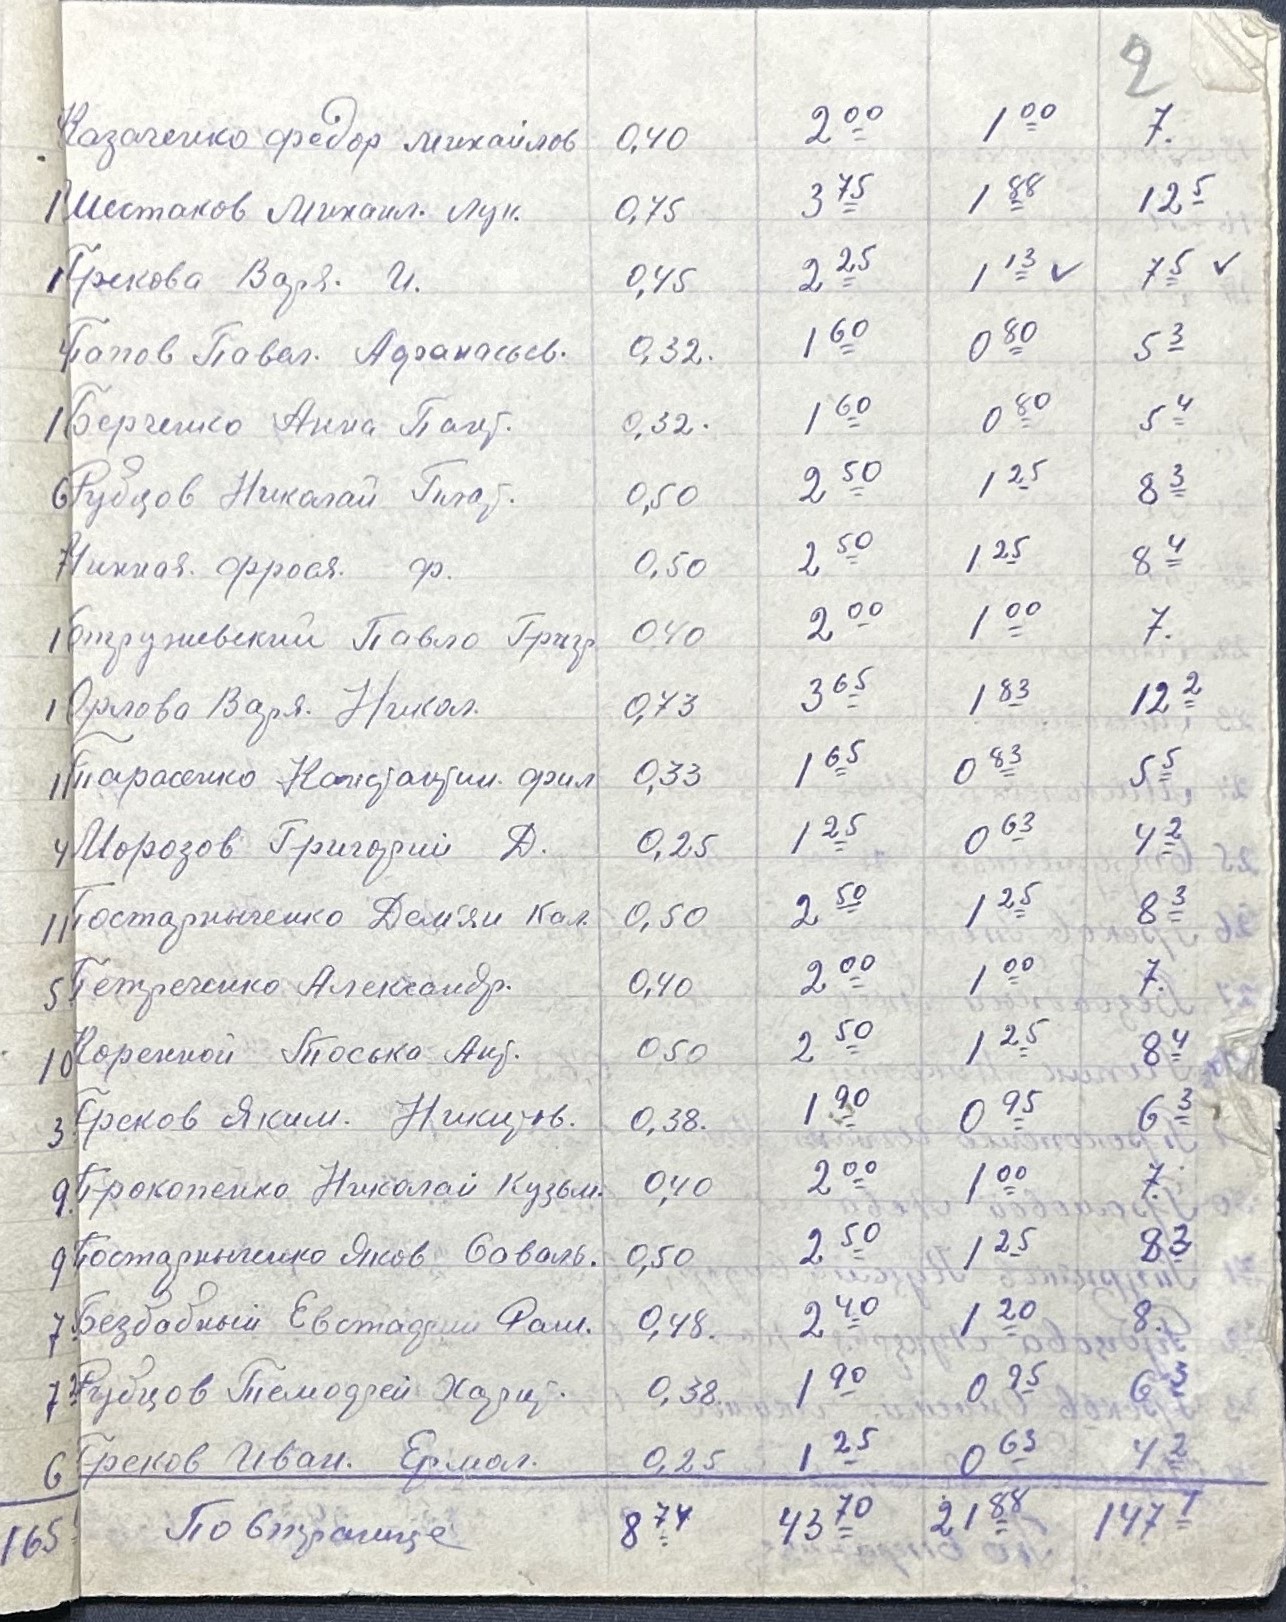 2
Казаченко Федор Михайлов 0,40 2 00 1 00 7.
Шестаков Михаил. Лук. 0,75 3 75 1 88 12 5
Грекова Варв. И. 0,45 2 25 1 13 ✓ 7 5 ✓
Попов Павел. Афанасьев. 0,32. 1 60 0 80 5 3
Берченко Анна Пант. 0,32. 1 60 0 80 5 4
6 Рубцов Николай Плат. 0,50 2 50 1 25 8 3
7 Ф. 0,50 2 50 1 25 8 4
Павло Григр 0,40 2 00 1 00 7.
Орлова Варв. Никол. 0,73 3 65 1 83 12 2
Тарасенко Константин. Фил 0,33 1 65 0 83 5 5
4 Морозов Григорий Д. 0,25 1 25 0 63 4 2
11 Постарниченко Демян Кал. 0,50 2 50 1 25 8 3
5 Петреченко Александр. 0,40 2 00 1 00 7.
10 Коренной Тоська Ант. 0,50 2 50 1 25 8 4
3 Греков Яким. Никитов. 0,38. 1 90 0 95 6 3
9. Прокопенко Николай Кузьм. 0,40 2 00 1 00 7.
9 Постарниченко Яков Саваль. 0,50 2 50 1 25 8 3
7 Безбабный Евстафий 0,48. 2 40 1 20 8.
7 Рубцов Темофей Харит. 0,38. 1 90 0 95 6 3
6 Греков Иван. Ермол. 0,25 1 25 0 63 4 2
165 По странице 8 74 43 70 21 88 147 1